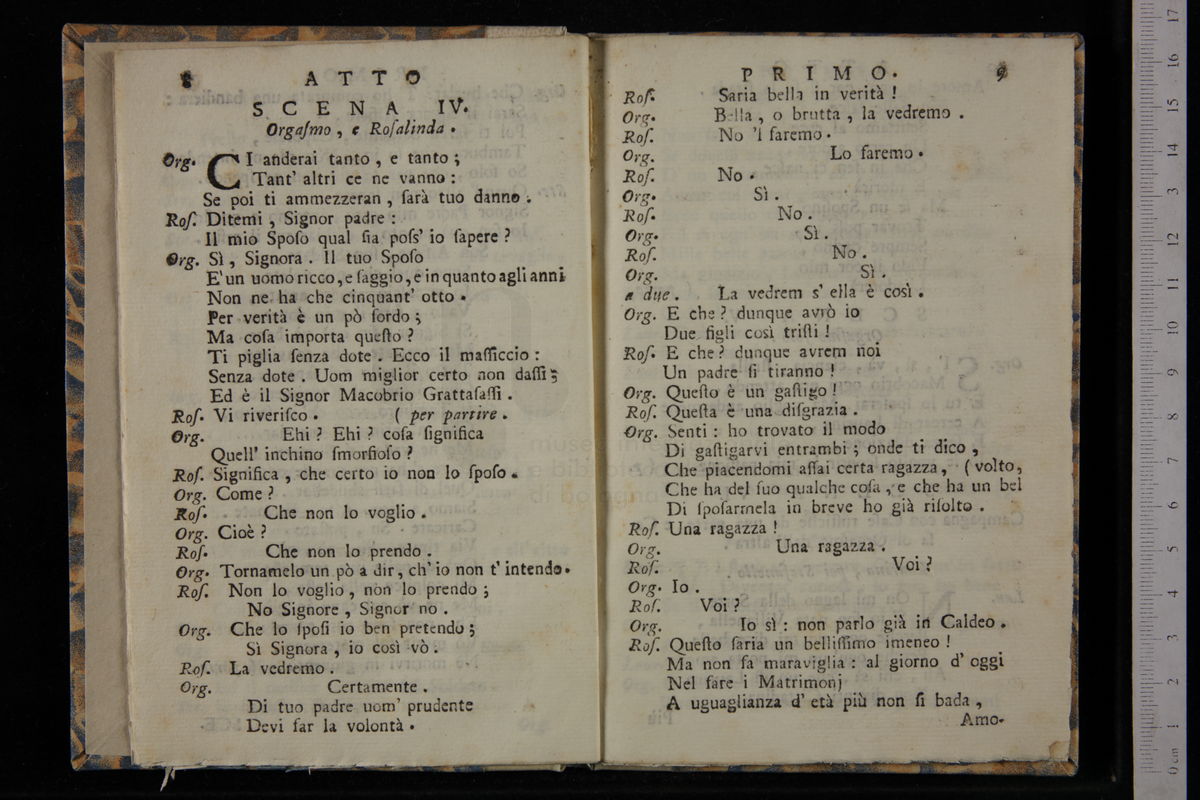 8 ATTO
SCENA IV.
Orgaſmo , e Roſalinda .
Org. CI anderai tanto , e tanto ;
Tant' altri ce ne vanno :
Se poi ti ammezzeran , ſarà tuo danno .
Roſ. Ditemi , Signor padre :
Il mio Spoſo qual ſia poſs' io ſapere ?
Org. Sì , Signora . Il tuo Spoſo
E' un uomo ricco, e ſaggio, e in quanto agli anni
Non ne ha che cinquant' otto .
Per verità è un pò ſordo ;
Ma coſa importa queſto ?
Ti piglia ſenza dote . Ecco il maſſiccio :
Senza dote . Uom miglior certo non daſſi ;
Ed è il Signor Macobrio Grattaſaſſi .
Roſ. Vi riveriſco . ( per partire .
Org. Ehi ? Ehi ? coſa ſignifica
Quell' inchino ſmorfioſo ?
Roſ. Significa , che certo io non lo ſpoſo .
Org. Come ?
Roſ. Che non lo voglio .
Org. Cioè ?
Roſ. Che non lo prendo .
Org. Tornamelo un pò a dir, ch' io non t' intendo.
Roſ. Non lo voglio , non lo prendo ;
No Signore , Signor no .
Org. Che lo ſpoſi io ben pretendo ;
Sì Signora , io così vò .
Roſ. La vedremo .
Org. Certamente .
Di tuo padre uom' prudente
Devi far la volontà .
PRIMO. 9
Roſ. Saria bella in verità !
Org. Bella , o brutta , la vedremo .
Roſ. No 'l faremo .
Org. Lo faremo .
Roſ. No .
Org. Sì .
Roſ. No .
Org. Sì .
Roſ. No .
Org. Sì .
a due . La vedrem s' ella è così .
Org. E che ? dunque avrò io
Due figli così triſti !
Roſ. E che ? dunque avrem noi
Un padre ſi tiranno !
Org. Queſto è un gaſtigo !
Roſ. Queſta è una diſgrazia .
Org. Senti : ho trovato il modo
Di gaſtigarvi entrambi ; onde ti dico ,
Che piacendomi aſſai certa ragazza , ( volto,
Che ha del ſuo qualche coſa , e che ha un bel
Di ſpoſarmela in breve ho già riſolto .
Roſ. Una ragazza !
Org. Una ragazza .
Roſ. Voi ?
Org. Io .
Roſ. Voi ?
Org. Io sì : non parlo già in Caldeo .
Roſ. Queſto ſaria un belliſſimo imeneo !
Ma non fa maraviglia : al giorno d' oggi
Nel fare i Matrimonj
A uguaglianza d' età più non ſi bada ,
Amo-